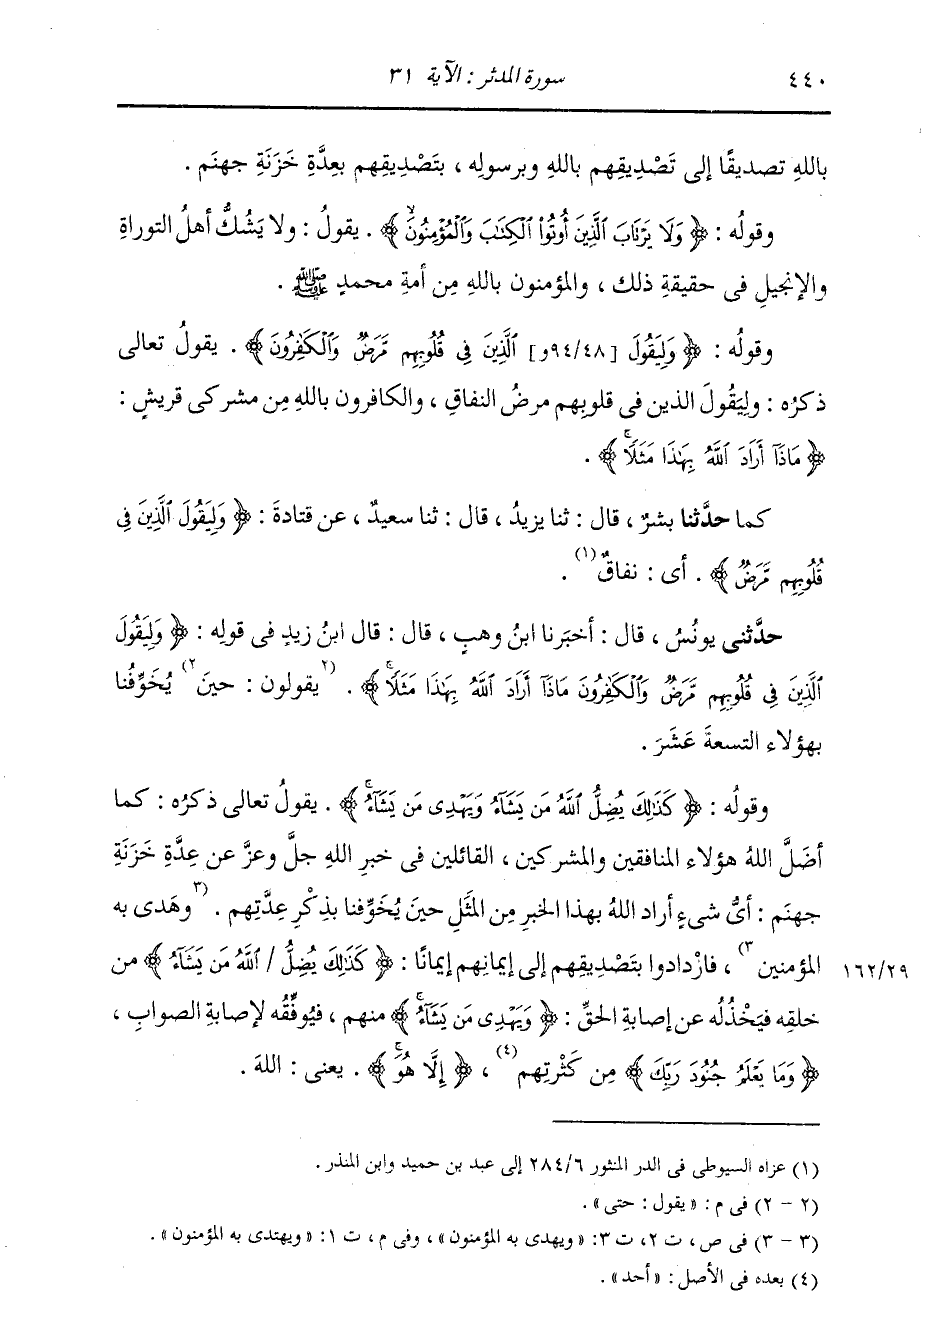 ٤٤٠ سورة المدثر : الآية ٣١
باللهِ تصديقًا إلى تَصْدِيقِهم باللهِ وبرسولِه ، بتَصْدِيقِهم بعِدَّةِ خَزَنَةِ جهنَم .
وقولُه : ﴿ وَلَا يَرْتَابَ ٱلَّذِينَ أُوتُوا۟ ٱلْكِتَٰبَ وَٱلْمُؤْمِنُونَۙ ﴾ . يقولُ : ولا يَشُكُّ أهلُ التوراةِ
والإنجيلِ فى حقيقةِ ذلك ، والمؤمنون باللهِ مِن أمةِ محمدٍ ﷺ .
وقولُه : ﴿ وَلِيَقُولَ [٩٤/٤٨و] ٱلَّذِينَ فِى قُلُوبِهِم مَّرَضٌ وَٱلْكَٰفِرُونَ ﴾ . يقولُ تعالى
ذكرُه : ولِيَقُولَ الذين فى قلوبِهم مرضُ النفاقِ ، والكافرون باللهِ مِن مشركى قريشٍ :
﴿ مَاذَآ أَرَادَ ٱللَّهُ بِهَٰذَا مَثَلًاۚ ﴾ .
كما حدَّثنا بشرٌ ، قال : ثنا يزيدُ ، قال : ثنا سعيدٌ ، عن قتادةَ : ﴿ وَلِيَقُولَ ٱلَّذِينَ فِى
قُلُوبِهِم مَّرَضٌ ﴾ . أى : نفاقٌ(١) .
حدَّثنى يونُسُ ، قال : أخبَرنا ابنُ وهبٍ ، قال : قال ابنُ زيدٍ فى قولِه : ﴿ وَلِيَقُولَ
ٱلَّذِينَ فِى قُلُوبِهِم مَّرَضٌ وَٱلْكَٰفِرُونَ مَاذَآ أَرَادَ ٱللَّهُ بِهَٰذَا مَثَلًاۚ ﴾ . (٢يقولون : حينَ٢) يُخَوِّفُنا
بهؤلاء التسعةَ عَشَرَ .
وقولُه : ﴿ كَذَٰلِكَ يُضِلُّ ٱللَّهُ مَن يَشَآءُ وَيَهْدِى مَن يَشَآءُۚ ﴾ . يقولُ تعالى ذكرُه : كما
أضَلَّ اللهُ هؤلاء المنافقين والمشركين ، القائلين فى خبرِ اللهِ جلَّ وعزَّ عن عِدَّةِ خَزَنَةِ
جهنَم : أىُّ شىءٍ أراد اللهُ بهذا الخبرِ مِن المثَلِ حينَ يُخَوِّفنا بذِكْرِ عِدَّتِهم . (٣وهَدى به
المؤمنين٣) ، فازْدادوا بتَصْدِيقِهم إلى إيمانِهم إيمانًا : ﴿ كَذَٰلِكَ يُضِلُّ / ٱللَّهُ مَن يَشَآءُ ﴾ من ١٦٢/٢٩
خلقِه فيَخْذُلُه عن إصابةِ الحقِّ : ﴿ وَيَهْدِى مَن يَشَآءُۚ ﴾ منهم ، فيُوفِّقُه لإصابةِ الصوابِ ،
﴿ وَمَا يَعْلَمُ جُنُودَ رَبِّكَ ﴾ مِن كَثْرتِهم(٤) ، ﴿ إِلَّا هُوَۚ ﴾ . يعنى : اللهَ .
(١) عزاه السيوطى فى الدر المنثور ٢٨٤/٦ إلى عبد بن حميد وابن المنذر .
(٢ - ٢) فى م : « يقول : حتى » .
(٣ - ٣) فى ص ، ت ٢، ت ٣: « ويهدى به المؤمنون » ، وفى م ، ت ١: « ويهتدى به المؤمنون » .
(٤) بعده فى الأصل : « أحد » .